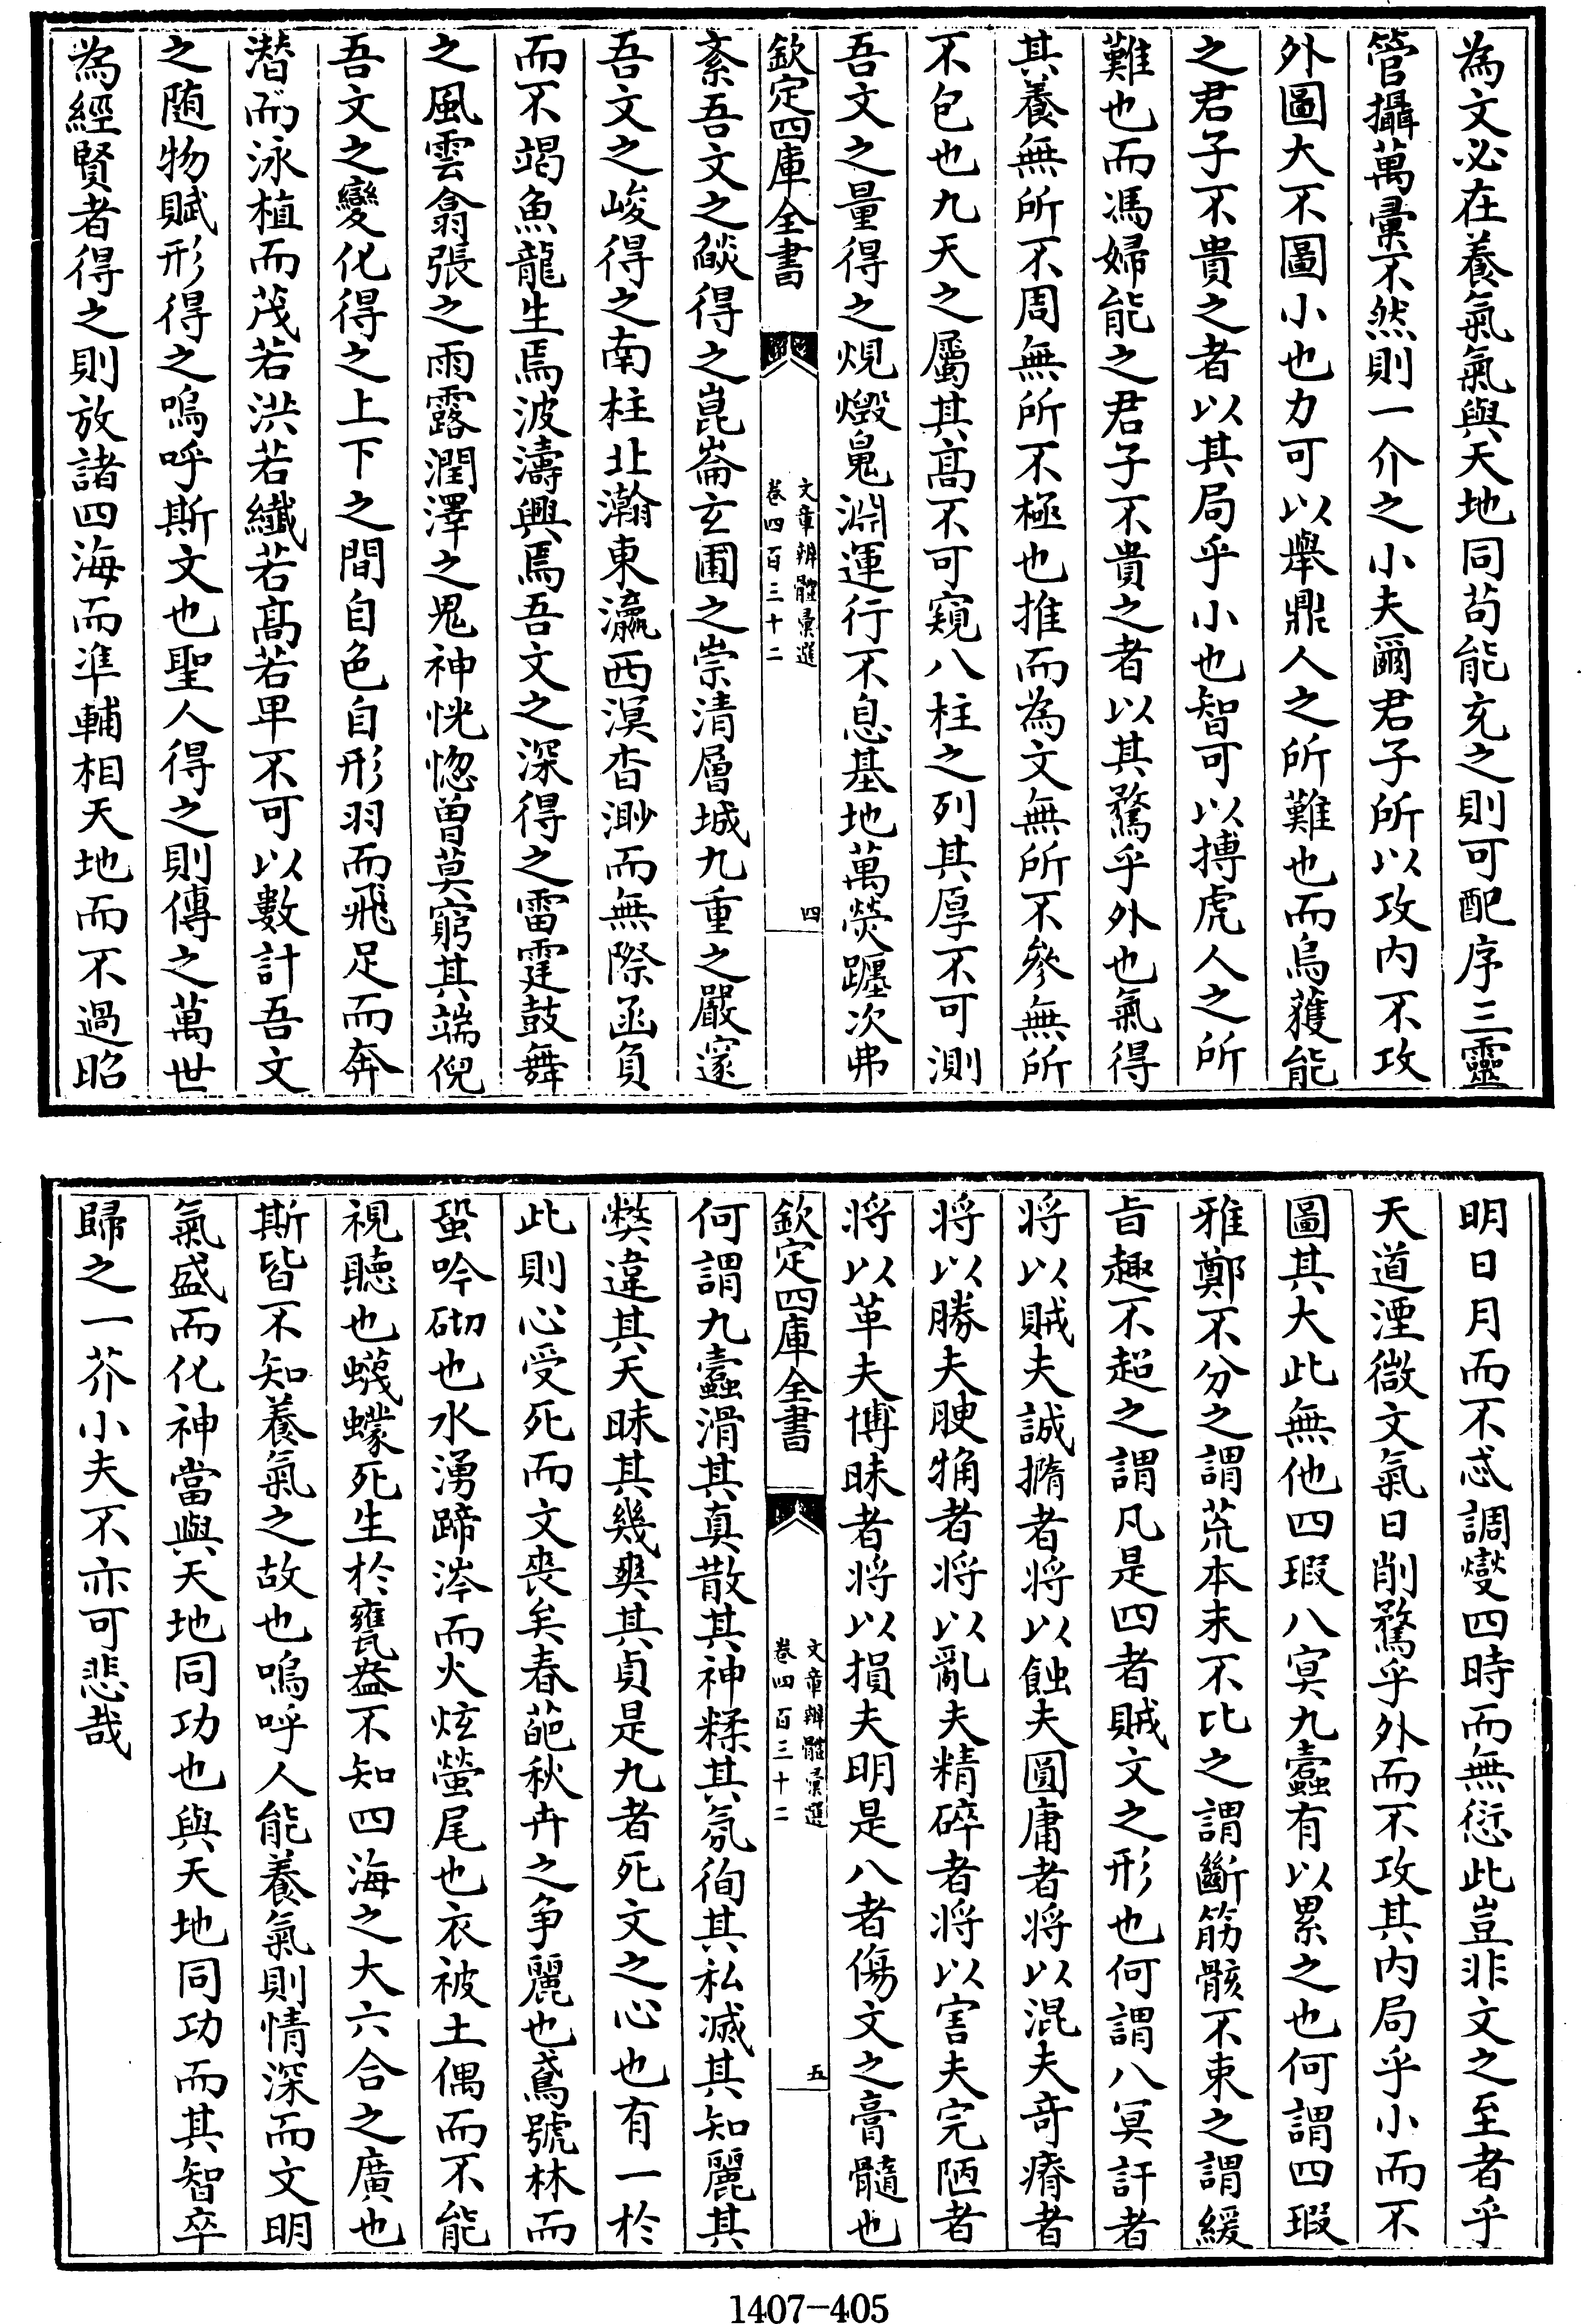 為文必在養氣氣與天地同苟能充之則可配序三靈
管攝萬彚不然則一介之小夫爾君子所以攻内不攻
外圖大不圖小也力可以舉鼎人之所難也而烏獲能
之君子不貴之者以其局乎小也智可以搏虎人之所
難也而馮婦能之君子不貴之者以其騖乎外也氣得
其養無所不周無所不極也推而為文無所不參無所
不包也九天之屬其髙不可窺八柱之列其厚不可測
吾文之量得之焜燬鬼淵運行不息基地萬熒躔次弗
欽定四庫全書
文章辨體彚選
卷四百三十二
四
紊吾文之燄得之崑崙玄圃之崇清層城九重之嚴邃
吾文之峻得之南柱北瀚東瀛西溟杳渺而無際函負
而不竭魚龍生焉波濤興焉吾文之深得之雷霆鼓舞
之風雲翕張之雨露潤澤之鬼神恍惚曽莫窮其端倪
吾文之變化得之上下之間自色自形羽而飛足而奔
潛而泳植而茂若洪若纎若髙若卑不可以數計吾文
之随物賦形得之嗚呼斯文也聖人得之則傳之萬世
為經賢者得之則放諸四海而凖輔相天地而不過昭
明日月而不忒調燮四時而無愆此豈非文之至者乎
天道湮微文氣日削騖乎外而不攻其内局乎小而不
圖其大此無他四瑕八㝠九蠧有以累之也何謂四瑕
雅鄭不分之謂荒本末不比之謂斷筋骸不束之謂緩
旨趣不超之謂凡是四者賊文之形也何謂八冥訐者
将以賊夫誠撱者将以蝕夫圓庸者将以混夫竒瘠者
将以勝夫腴觕者将以亂夫精碎者将以害夫完陋者
将以革夫博昧者将以損夫明是八者傷文之膏髓也
欽定四庫全書
文章辨體彚選
卷四百三十二
五
何謂九蠧滑其真散其神糅其氛徇其私滅其知麗其
弊違其天昧其幾爽其貞是九者死文之心也有一於
此則心受死而文喪矣春葩秋卉之争麗也鳶號林而
蛩吟砌也水湧蹄涔而火炫螢尾也衣被土偶而不能
視聽也蠛蠓死生於甕盎不知四海之大六合之廣也
斯皆不知養氣之故也嗚呼人能養氣則情深而文明
氣盛而化神當與天地同功也與天地同功而其智卒
歸之一芥小夫不亦可悲哉
1407-405